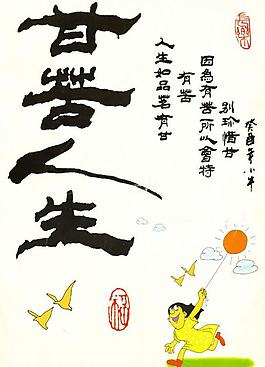 甘苦人生
人生如品茗有甘
有苦
因為有苦所以會特
別珍惜甘
癸酉年小牛